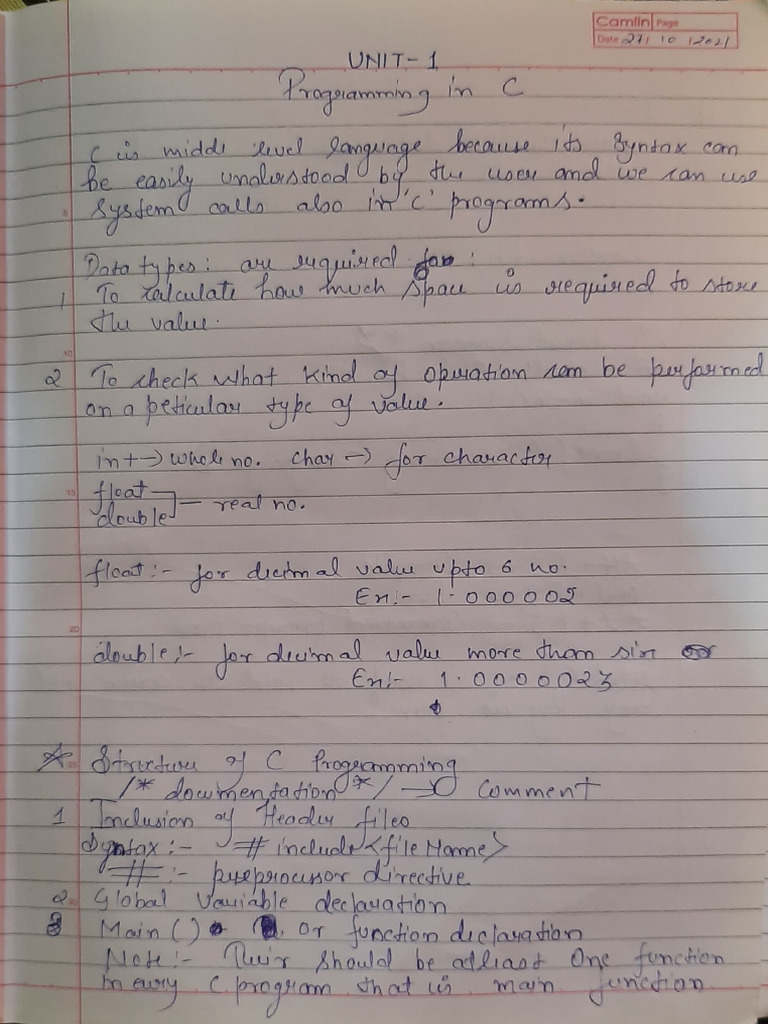 Camlin Page
Date 27/ 10 /2021
UNIT-1
Programming in C
C is middle level language because its syntax can
be easily understood by the user and we can use
system calls also in 'C' programs.
5
Data types: are required for:
1 To calculate how much space is required to store
the value.
10
2 To check what kind of operation can be performed
on a peticular type of value.
int → whole no. char → for character
15
float
double ] — real no.
float :- for decimal value upto 6 no.
Ex:- 1.000002
20
double :- for decimal value more than six or
Ex:- 1.0000023
☆ Structure of C Programming
/* documentation */ → Comment
1 Inclusion of Header files
Syntax :- # include <file Name>
# :- preprocessor directive
2 Global variable declaration
3 Main () or function declaration
Note :- Their should be atleast One function
in every C program that is main function